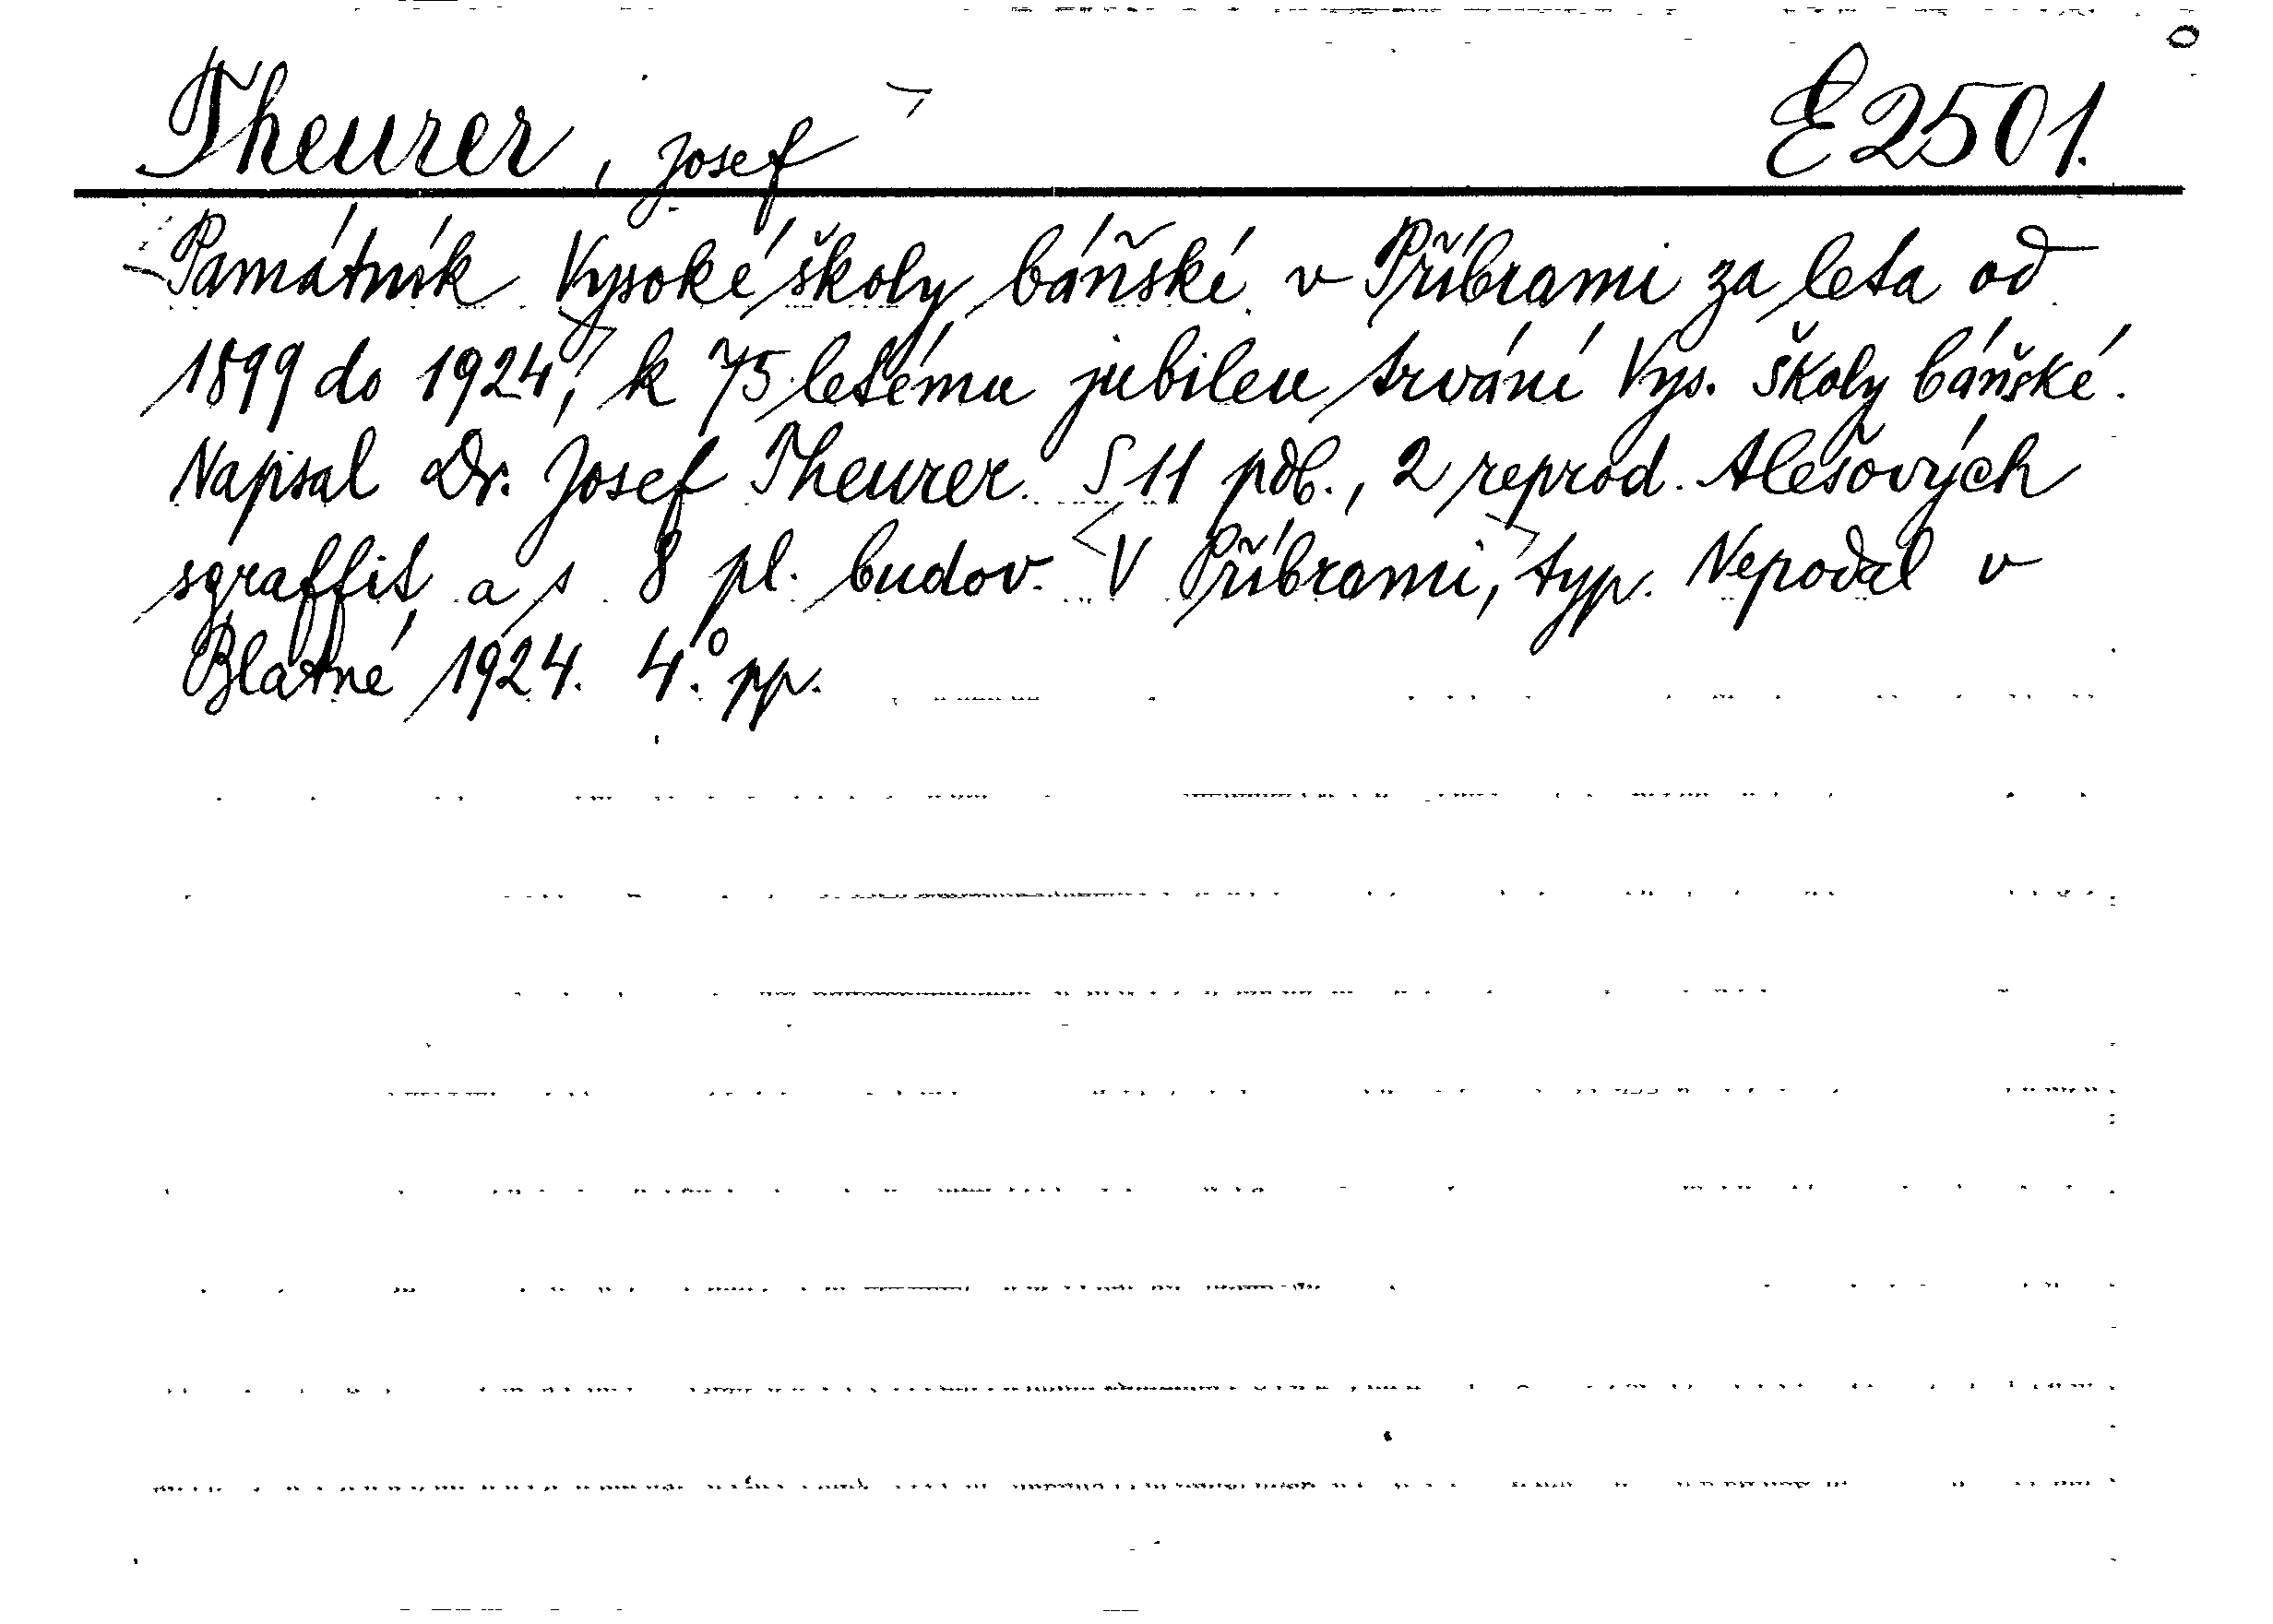 Theurer, Josef E 2501.
Památník Vysoké školy báňské v Příbrami za leta od
1899 do 1924, k 75 letému jubileu trvání Vys. školy báňské.
Napisal Dr. Josef Theurer. S 11 pdb., 2 reprod. Alešových
sgraffit, a s 8 pl. budov. V Příbrami, typ. Nepodal v
Blatné 1924. 4.° pp.